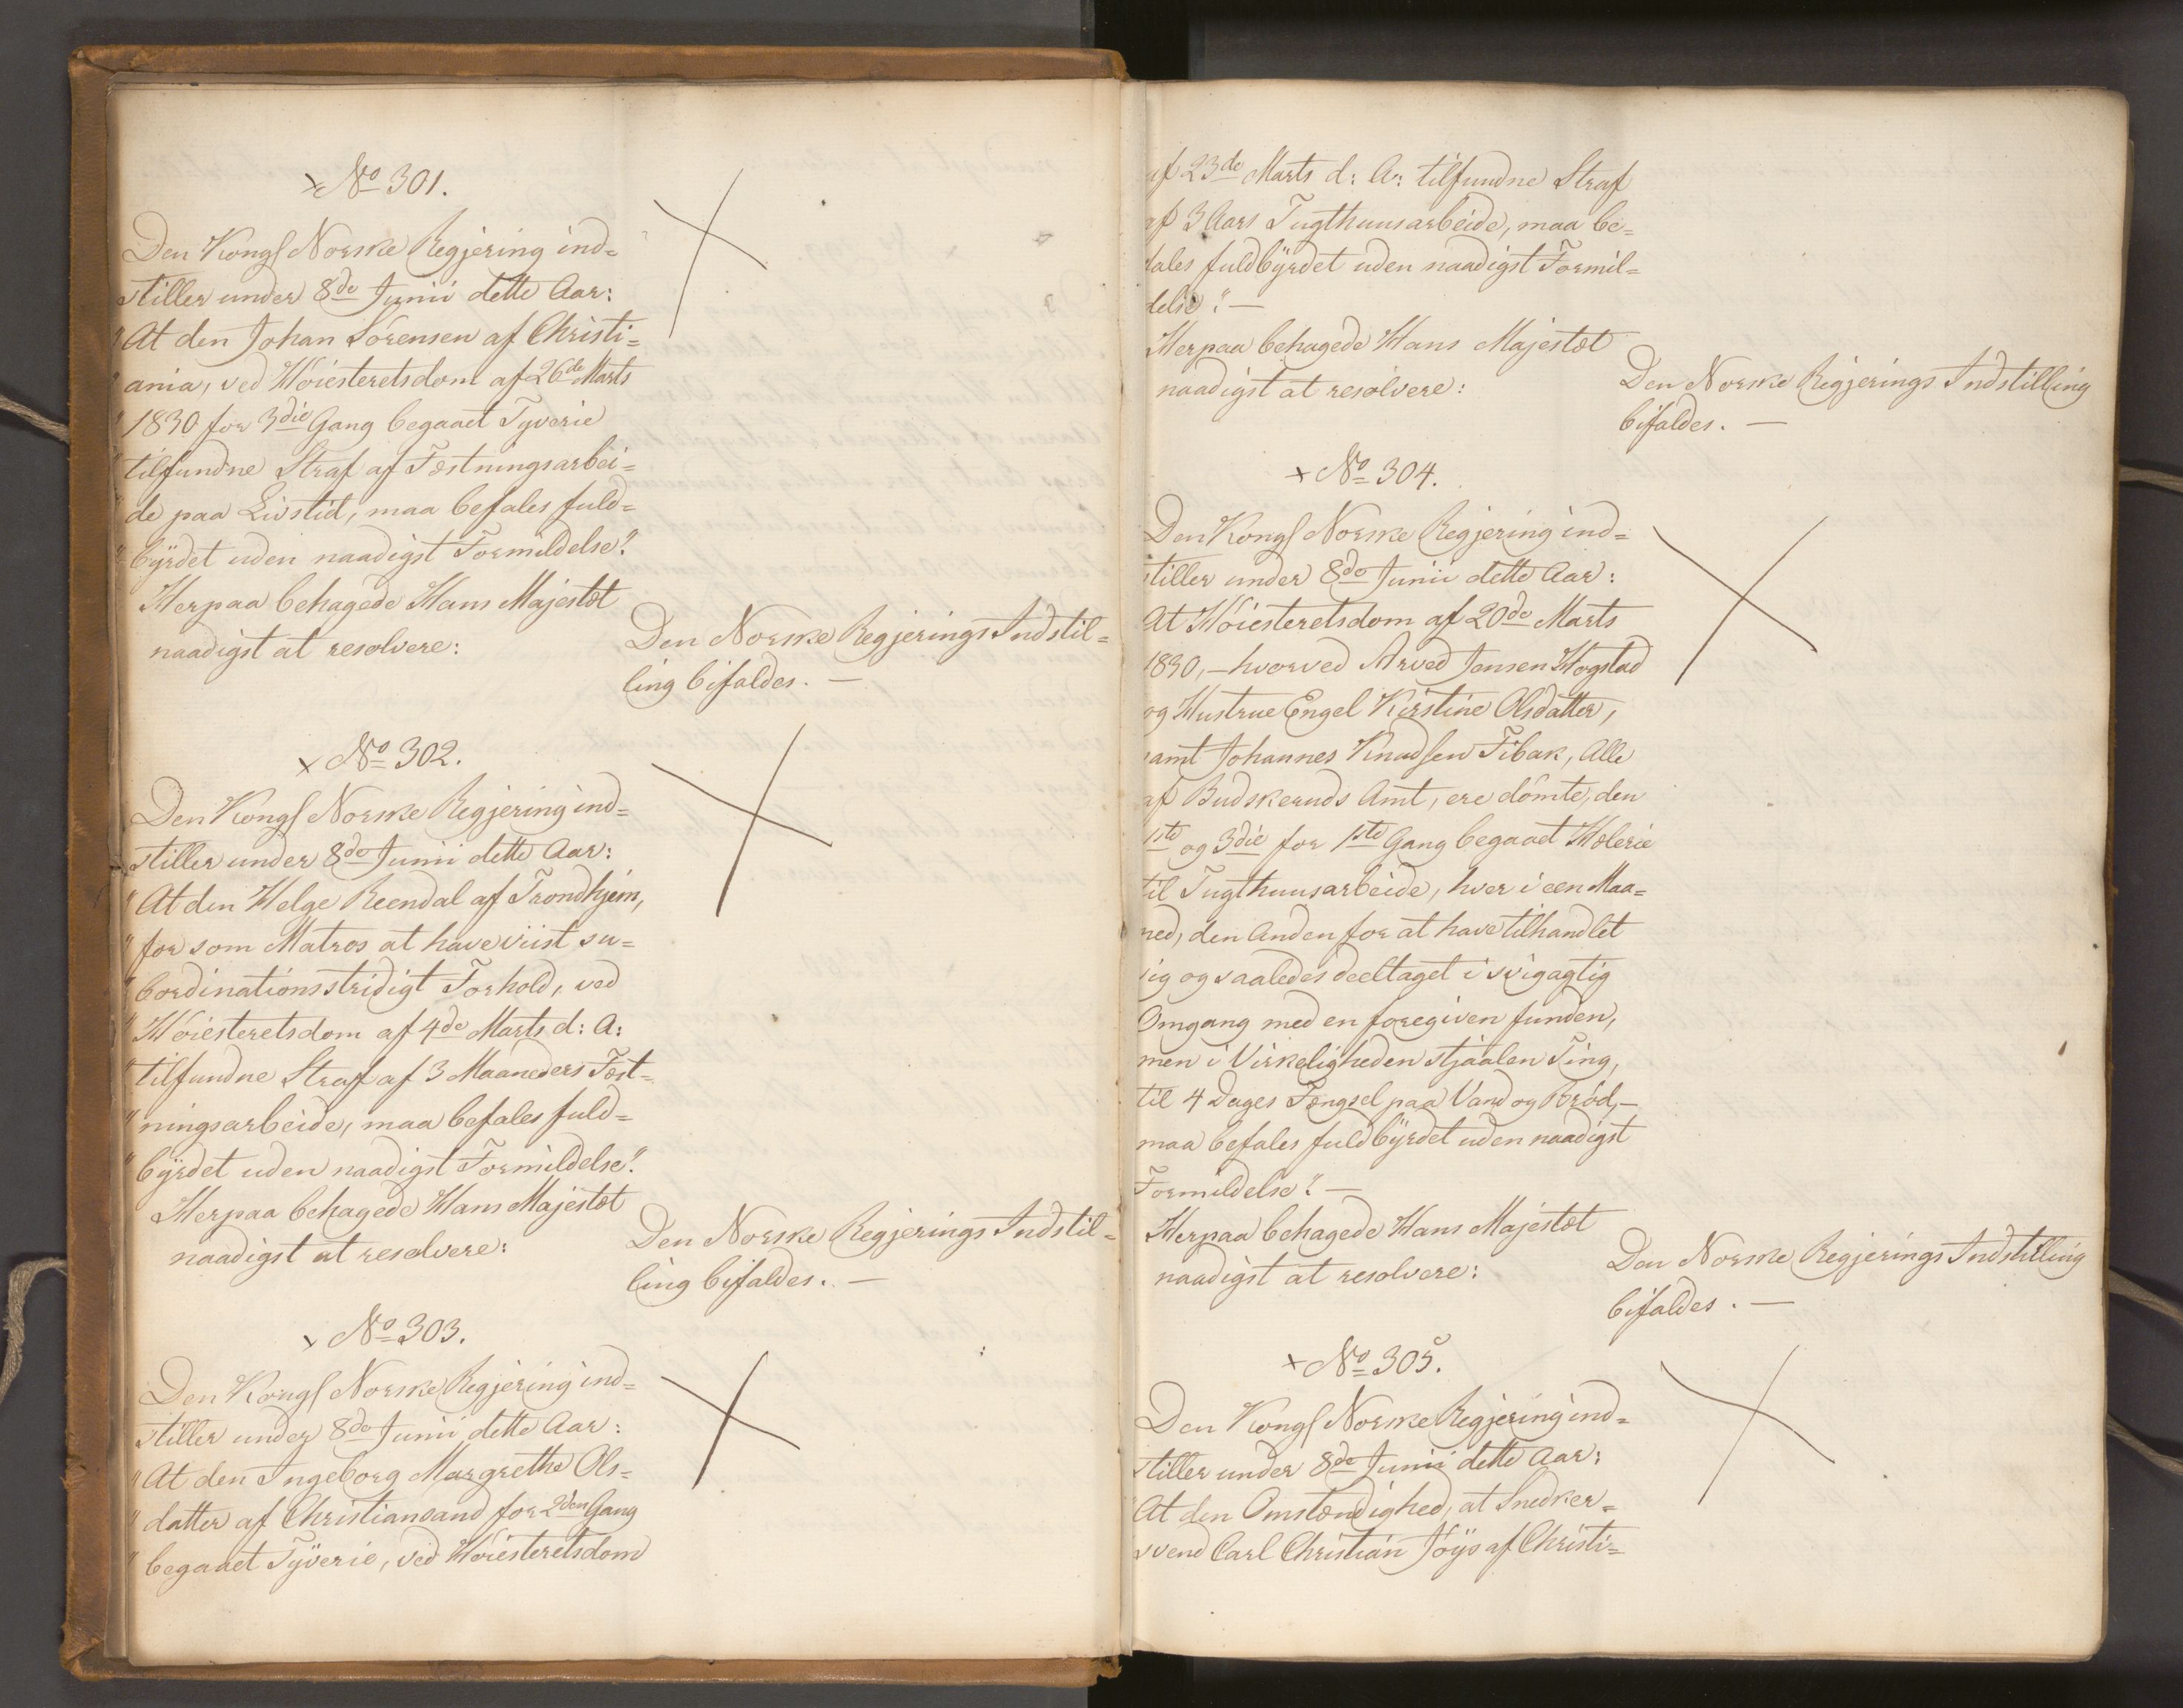 × No 301.
Den Kongl Norske Regjering ind=
stiller under 8de Junii dette Aar:
"At den Johan Sørensen af Christi=
"ania, ved Høiesteretsdom af 26de Marts
"1830 for 3die Gang begaaet Tyverie
"tilfundne Straf af Fæstningsarbei=
"de paa Livstid, maa befales fuld=
"byrdet uden naadigst Formildelse".
Herpaa behagede Hans Majestæt
naadigst at resolvere:
Den Norske Regjerings Indstil=
ling bifaldes. —
× No 302.
Den Kongl Norske Regjering ind=
stiller under 8de Junii dette Aar:
"At den Helge Reendal af Trondhjem,
"for som Matros at have viist su=
"bordinationsstridigt Forhold, ved
"Høiesteretsdom af 4de Marts d: A:
"tilfundne Straf af 3 Maaneders Fæst=
"ningsarbeide, maa befales fuld=
"byrdet uden naadigst Formildelse".
Herpaa behagede Hans Majestæt
naadigst at resolvere:
Den Norske Regjerings Indstil=
ling bifaldes. —
× No 303.
Den Kongl Norske Regjering ind=
stiller under 8de Junii dette Aar:
"At den Ingeborg Margrethe Ols=
"datter af Christiansand for 2den Gang
"begaaet Tyverie, ved Høiesteretsdom
af 23de Marts d: A: tilfundne Straf
af 3 Aars Tugthuusarbeide, maa be=
fales fuldbyrdet uden naadigst Formil=
delse". —
Herpaa behagede Hans Majestæt
naadigst at resolvere:
Den Norske Regjerings Indstilling
bifaldes. —
× No 304.
Den Kongl Norske Regjering ind=
stiller under 8de Junii dette Aar:
At Høiesteretsdom af 20de Marts
1830, — hvorved Arved Jensen Hogstad
og Hustrue Engel Kirstine Olsdatter,
samt Johannes Knudsen Tibak, Alle
af Budskeruds Amt, ere dømte, den
1ste og 3die for 1ste Gang begaaet Hælerie
til Tugthuusarbeide, hver i een Maa=
ned, den Anden for at have tilhandlet
sig og saaledes deeltaget i svigagtig
Omgang med en foregiven funden,
men i Virkeligheden stjaalen Ting,
til 4 Dages Fængsel paa Vand og Brød, —
maa befales fuldbyrdet uden naadigst
Formildelse". —
Herpaa behagede Hans Majestæt
naadigst at resolvere:
Den Norske Regjerings Indstilling
bifaldes. —
× No 305.
Den Kongl Norske Regjering ind=
stiller under 8de Junii dette Aar:
At den Omstændighed, at Snedker=
svend Carl Christian Jöÿs af Christi=